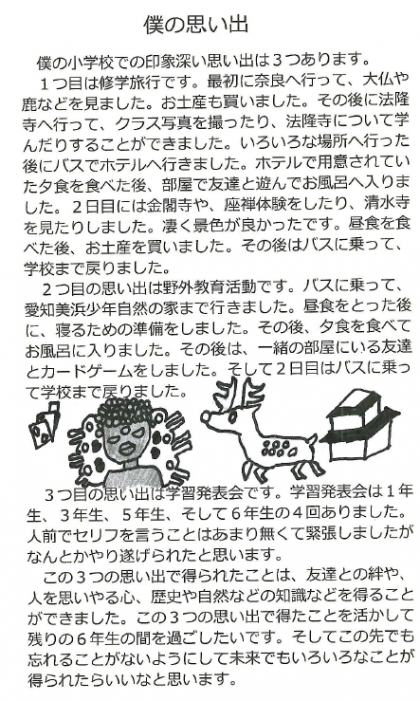 僕の思い出
僕の小学校での印象深い思い出は３つあります。
１つ目は修学旅行です。最初に奈良へ行って、大仏や
鹿などを見ました。お土産も買いました。その後に法隆
寺へ行って、クラス写真を撮ったり、法隆寺について学
んだりすることができました。いろいろな場所へ行った
後にバスでホテルへ行きました。ホテルで用意されてい
た夕食を食べた後、部屋で友達と遊んでお風呂へ入りま
した。２日目には金閣寺や、座禅体験をしたり、清水寺
を見たりしました。凄く景色が良かったです。昼食を食
べた後、お土産を買いました。その後はバスに乗って、
学校まで戻りました。
２つ目の思い出は野外教育活動です。バスに乗って、
愛知美浜少年自然の家まで行きました。昼食をとった後
に、寝るための準備をしました。その後、夕食を食べて
お風呂に入りました。その後は、一緒の部屋にいる友達
とカードゲームをしました。そして２日目はバスに乗っ
て学校まで戻りました。
３つ目の思い出は学習発表会です。学習発表会は１年
生、３年生、５年生、そして６年生の４回ありました。
人前でセリフを言うことはあまり無くて緊張しましたが
なんとかやり遂げられたと思います。
この３つの思い出で得られたことは、友達との絆や、
人を思いやる心、歴史や自然などの知識などを得ること
ができました。この３つの思い出で得たことを活かして
残りの６年生の間を過ごしたいです。そしてこの先でも
忘れることがないようにして未来でもいろいろなことが
得られたらいいなと思います。